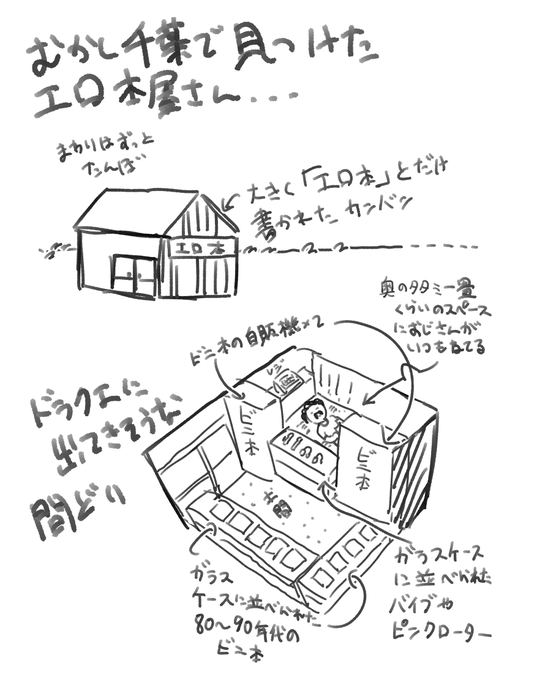 むかし千葉で見つけた
エロ本屋さん...
まわりはずっと
たんぼ
大きく「エロ本」とだけ
書かれたカンバン
エロ本
奥のタタミ一畳
くらいのスペース
におじさんが
いつもねてる
ビニ本の自販機×2
ドラクエに
出てきそうな
間どり
ビニ本
ビニ本
ガラス
ケースに並べられた
80〜90年代の
ビニ本
ガラスケース
に並べられた
バイブや
ピンクローター